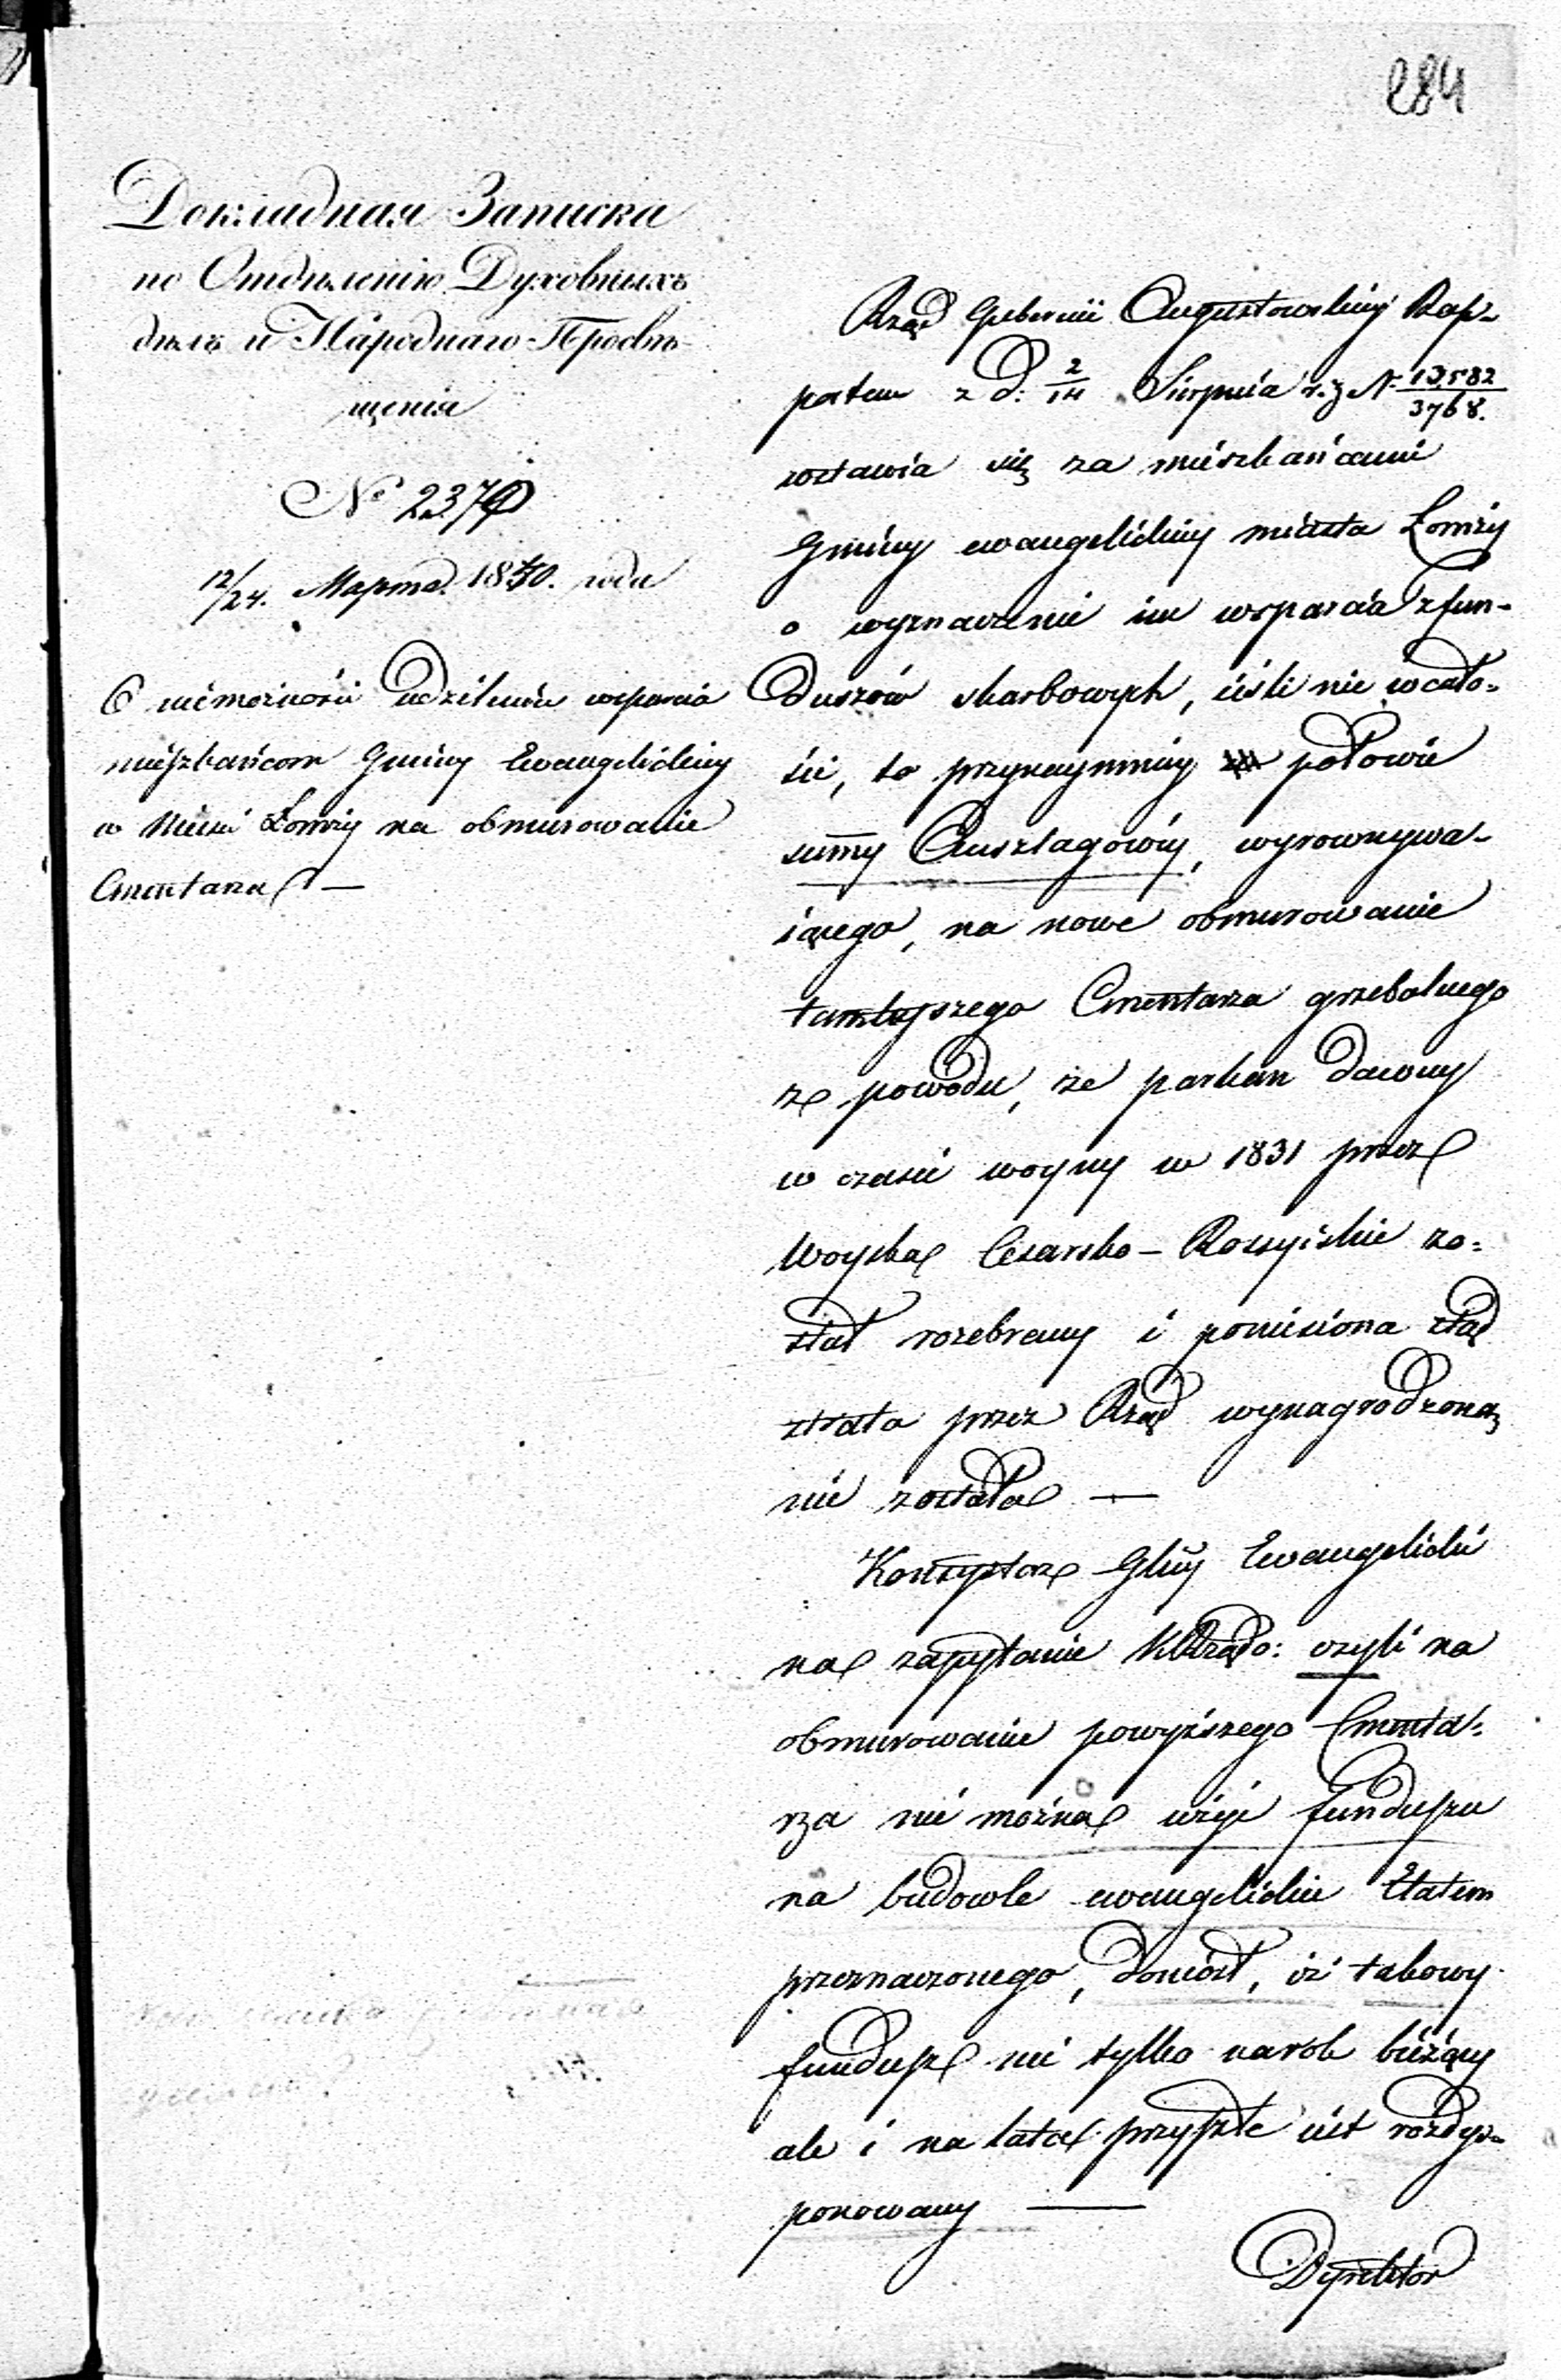 284
Докладная Записка
по Отдѣленію Духовныхъ
дѣлъ и Народнаго Просвѣ-
щенія
№ 2370
12/24. Марта 1840. года
O niemożności udzielenia wsparcia
mieszkańcom Gminy Ewangelickiey
w Mieście Łomży na obmurowanie
Cmentarza —
Rząd Gubernii Augustowskiey Rap-
portem z d: 2/14 Sierpnia r. z N. 13,582/3768.
wstawia się za mieszkańcami
Gminy ewangelickiey miasta Łomży
o wyznaczenie im wsparcia z fun-
duszów skarbowych, ieśli nie w cało-
ści, to przynaymniey połowie
summy Anszlagowéy, wyrownywa-
iącego, na nowe obmurowanie
tamteyszego Cmentarza grzebalnego
z powodu, że parkan dawny
w czasie woyny w 1831 przez
Woyska Cesarsko-Rossyiskie zo-
stał rozebrany i poniesiona ztąd
strata przez Rząd wynagrodzoną
nie została —
Konsystorz Glny Ewangelicki
na zapytanie czyli na
obmurowanie powyższego Cmenta-
rza nie można użyć funduszu
na budowle ewangelickie Etatem
przeznaczonego, doniósł, iż takowy
fundusz nie tylko na rok bieżący
ale i na lata przyszłe iest rozdys-
ponowany —
Dyrektor